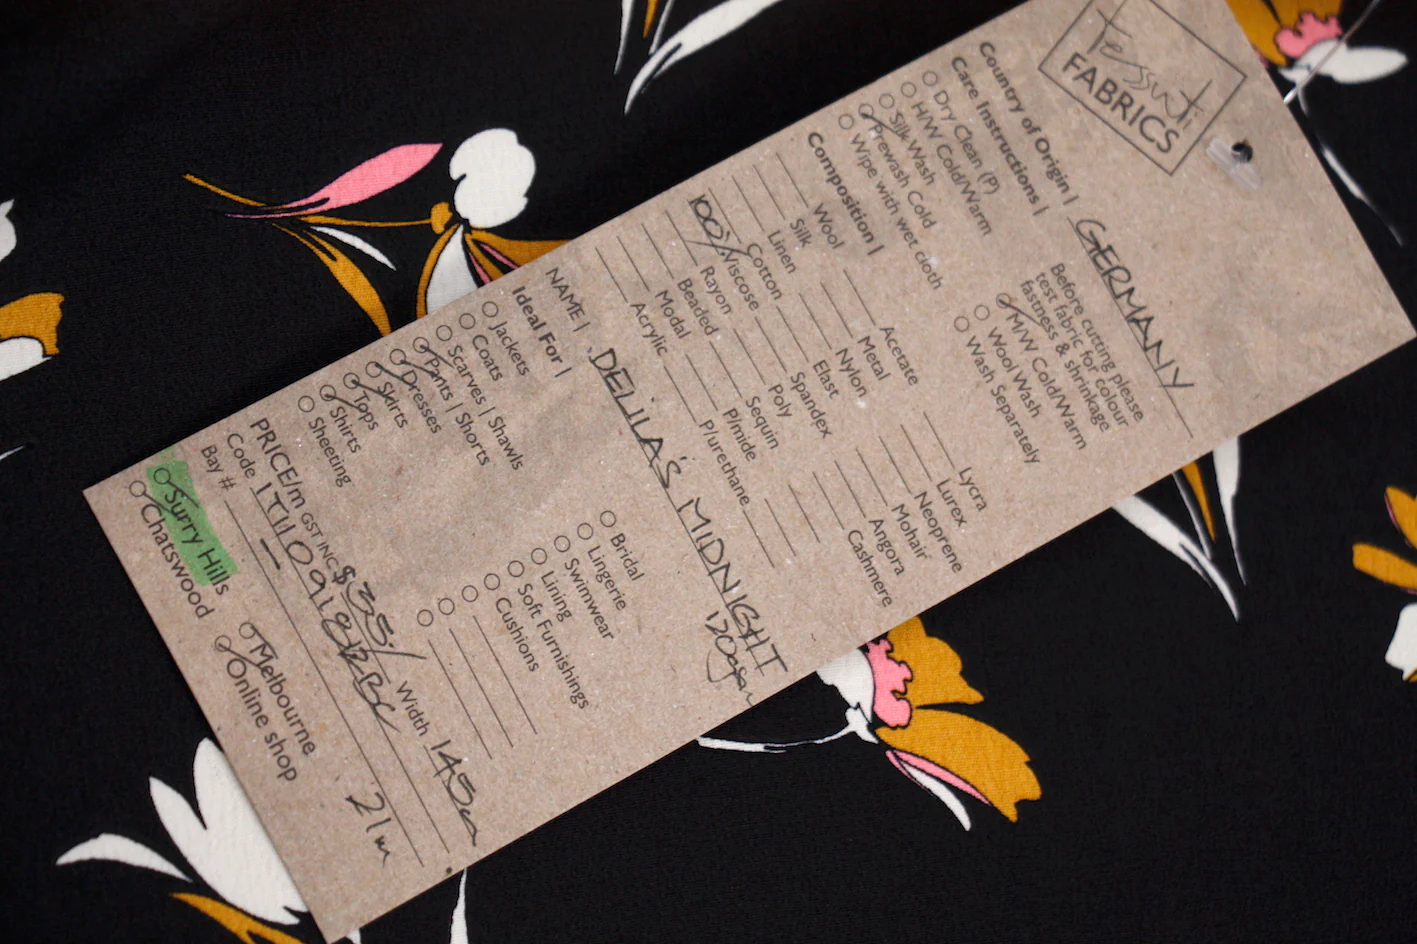 Tessuti
FABRICS
Country of Origin | GERMANY
Care Instructions |
Dry Clean (P)
H/W Cold/Warm
Silk Wash
Prewash Cold
Wipe with wet cloth
Before cutting please
test fabric for colour
fastness & shrinkage
M/W Cold/Warm
Wool Wash
Wash Separately
Composition |
Wool Acetate Lycra
Silk Metal Lurex
Linen Nylon Neoprene
Cotton Elast Mohair
100% Viscose Spandex Angora
Rayon Poly Cashmere
Beaded Sequin
Modal P/mide
Acrylic P/urethane
NAME | DELILA'S MIDNIGHT
120gsm
Ideal For |
Jackets Bridal
Coats Lingerie
Scarves | Shawls Swimwear
Pants | Shorts Lining
Dresses Soft Furnishings
Skirts Cushions
Tops
Shirts
Sheeting
PRICE/m GST INC $35/ Width 145cm
Code
Bay # 21m
Surry Hills Melbourne
Chatswood Online shop